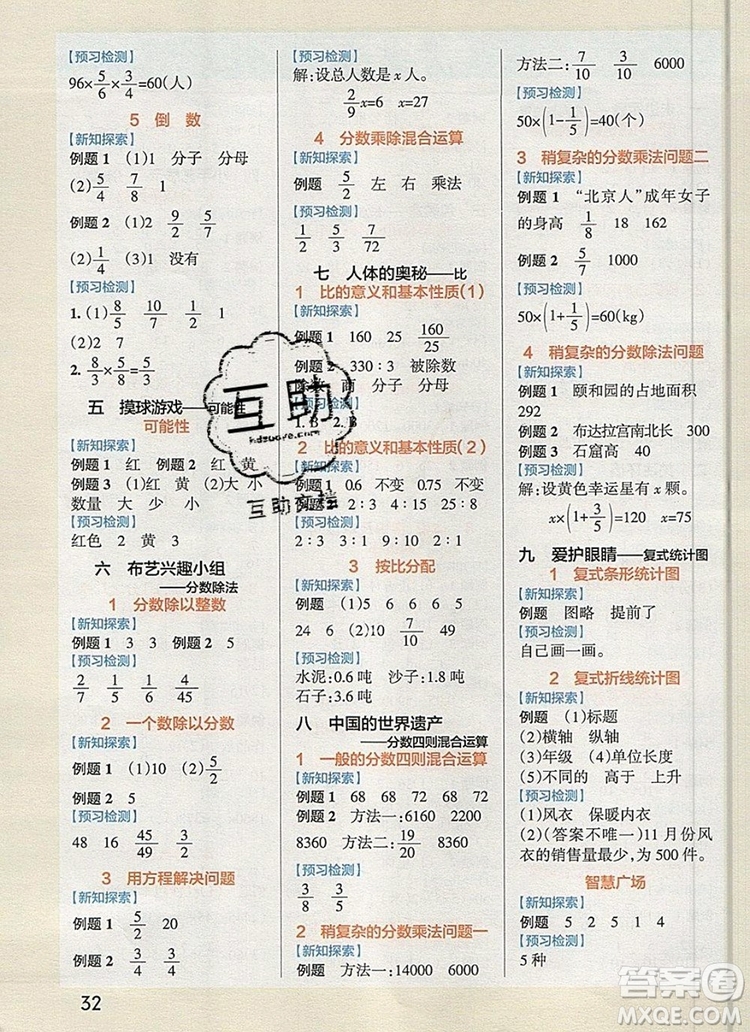 【预习检测】
96×5/6×3/4=60(人)
5 倒 数
【新知探索】
例题 1 (1)1 分子 分母
(2)5/4 7/8
例题 2 (1)2 9/2 5/7
(2)1/2 (3)1 没有
【预习检测】
1. (1)8/5 10/7 1/2
(2)2 7
2. 8/3×5/8=5/3
五 摸球游戏——可能性
可能性
【新知探索】
例题 1 红 红 黄
例题 2 (1)红 黄 (2)大 小
数量 大 少 小
【预习检测】
红色 2 黄 3
六 布艺兴趣小组
——分数除法
1 分数除以整数
【新知探索】
例题 1 3 3 例题 2 5
【预习检测】
2/7 1/5 1/6 4/15
2 一个数除以分数
【新知探索】
例题 1 (1)10 (2)5/2
例题 2 5
【预习检测】
48 16 45/49 3/2
3 用方程解决问题
【新知探索】
例题 1 5/2 20
例题 2 3/4 3/4
32
【预习检测】
解:设总人数是 x 人。
2/9x=6 x=27
4 分数乘除混合运算
【新知探索】
例题 5/2 左 右 乘法
【预习检测】
1/2 5/7 7/72
七 人体的奥秘——比
1 比的意义和基本性质(1)
【新知探索】
例题 1 160 25 160/25
例题 2 330∶3 被除数
除数 商 分子 分母
【预习检测】
1. B 2. B
2 比的意义和基本性质(2)
【新知探索】
例题 1 0.6 不变 0.75 不变
例题 2 4∶5 25∶8 4∶1
【预习检测】
2∶3 1∶2 3∶1 9∶1
3 按比分配
【新知探索】
例题 (1)5 6 6 5
24 6 (2)40 7/10 4/9
【预习检测】
水泥:0.6 吨 沙子:1.8 吨
石子:3.6 吨
八 中国的世界遗产
——分数四则混合运算
1 一般的分数四则混合运算
【新知探索】
例题 1 68 68 72 72
例题 2 方法一:6160 2200
8360 方法二:19/20 8360
【预习检测】
3/8 3/4 1/3
2 稍复杂的分数乘法问题一
【新知探索】
例题 方法一:14000 6000
方法二:7/10 3/10 6000
【预习检测】
50×(1-1/5)=40(个)
3 稍复杂的分数乘法问题二
【新知探索】
例题 1 “北京人”成年女子
的身高 1/8 18 162
例题 2 5/7
【预习检测】
50×(1+1/5)=60(kg)
4 稍复杂的分数除法问题
【新知探索】
例题 1 颐和园的占地面积
292
例题 2 布达拉宫南北长 300
例题 3 石窟高 40
【预习检测】
解:设黄色幸运星有 x 颗。
x×(1+3/5)=120 x=75
九 爱护眼睛——复式统计图
1 复式条形统计图
【新知探索】
例题 图略 提前了
【预习检测】
自己画一画。
2 复式折线统计图
【新知探索】
例题 (1)标题
(2)横轴 纵轴
(3)年级 (4)单位长度
(5)不同的 高于 上升
【预习检测】
(1)风衣 保暖内衣
(2)(答案不唯一)11 月份风
衣的销售量最少,为 500 件。
智慧广场
例题 5 2 5 1 4
【预习检测】
5 种
互助
hdzuoye.com
互助文档
答案圈
MXQE.COM